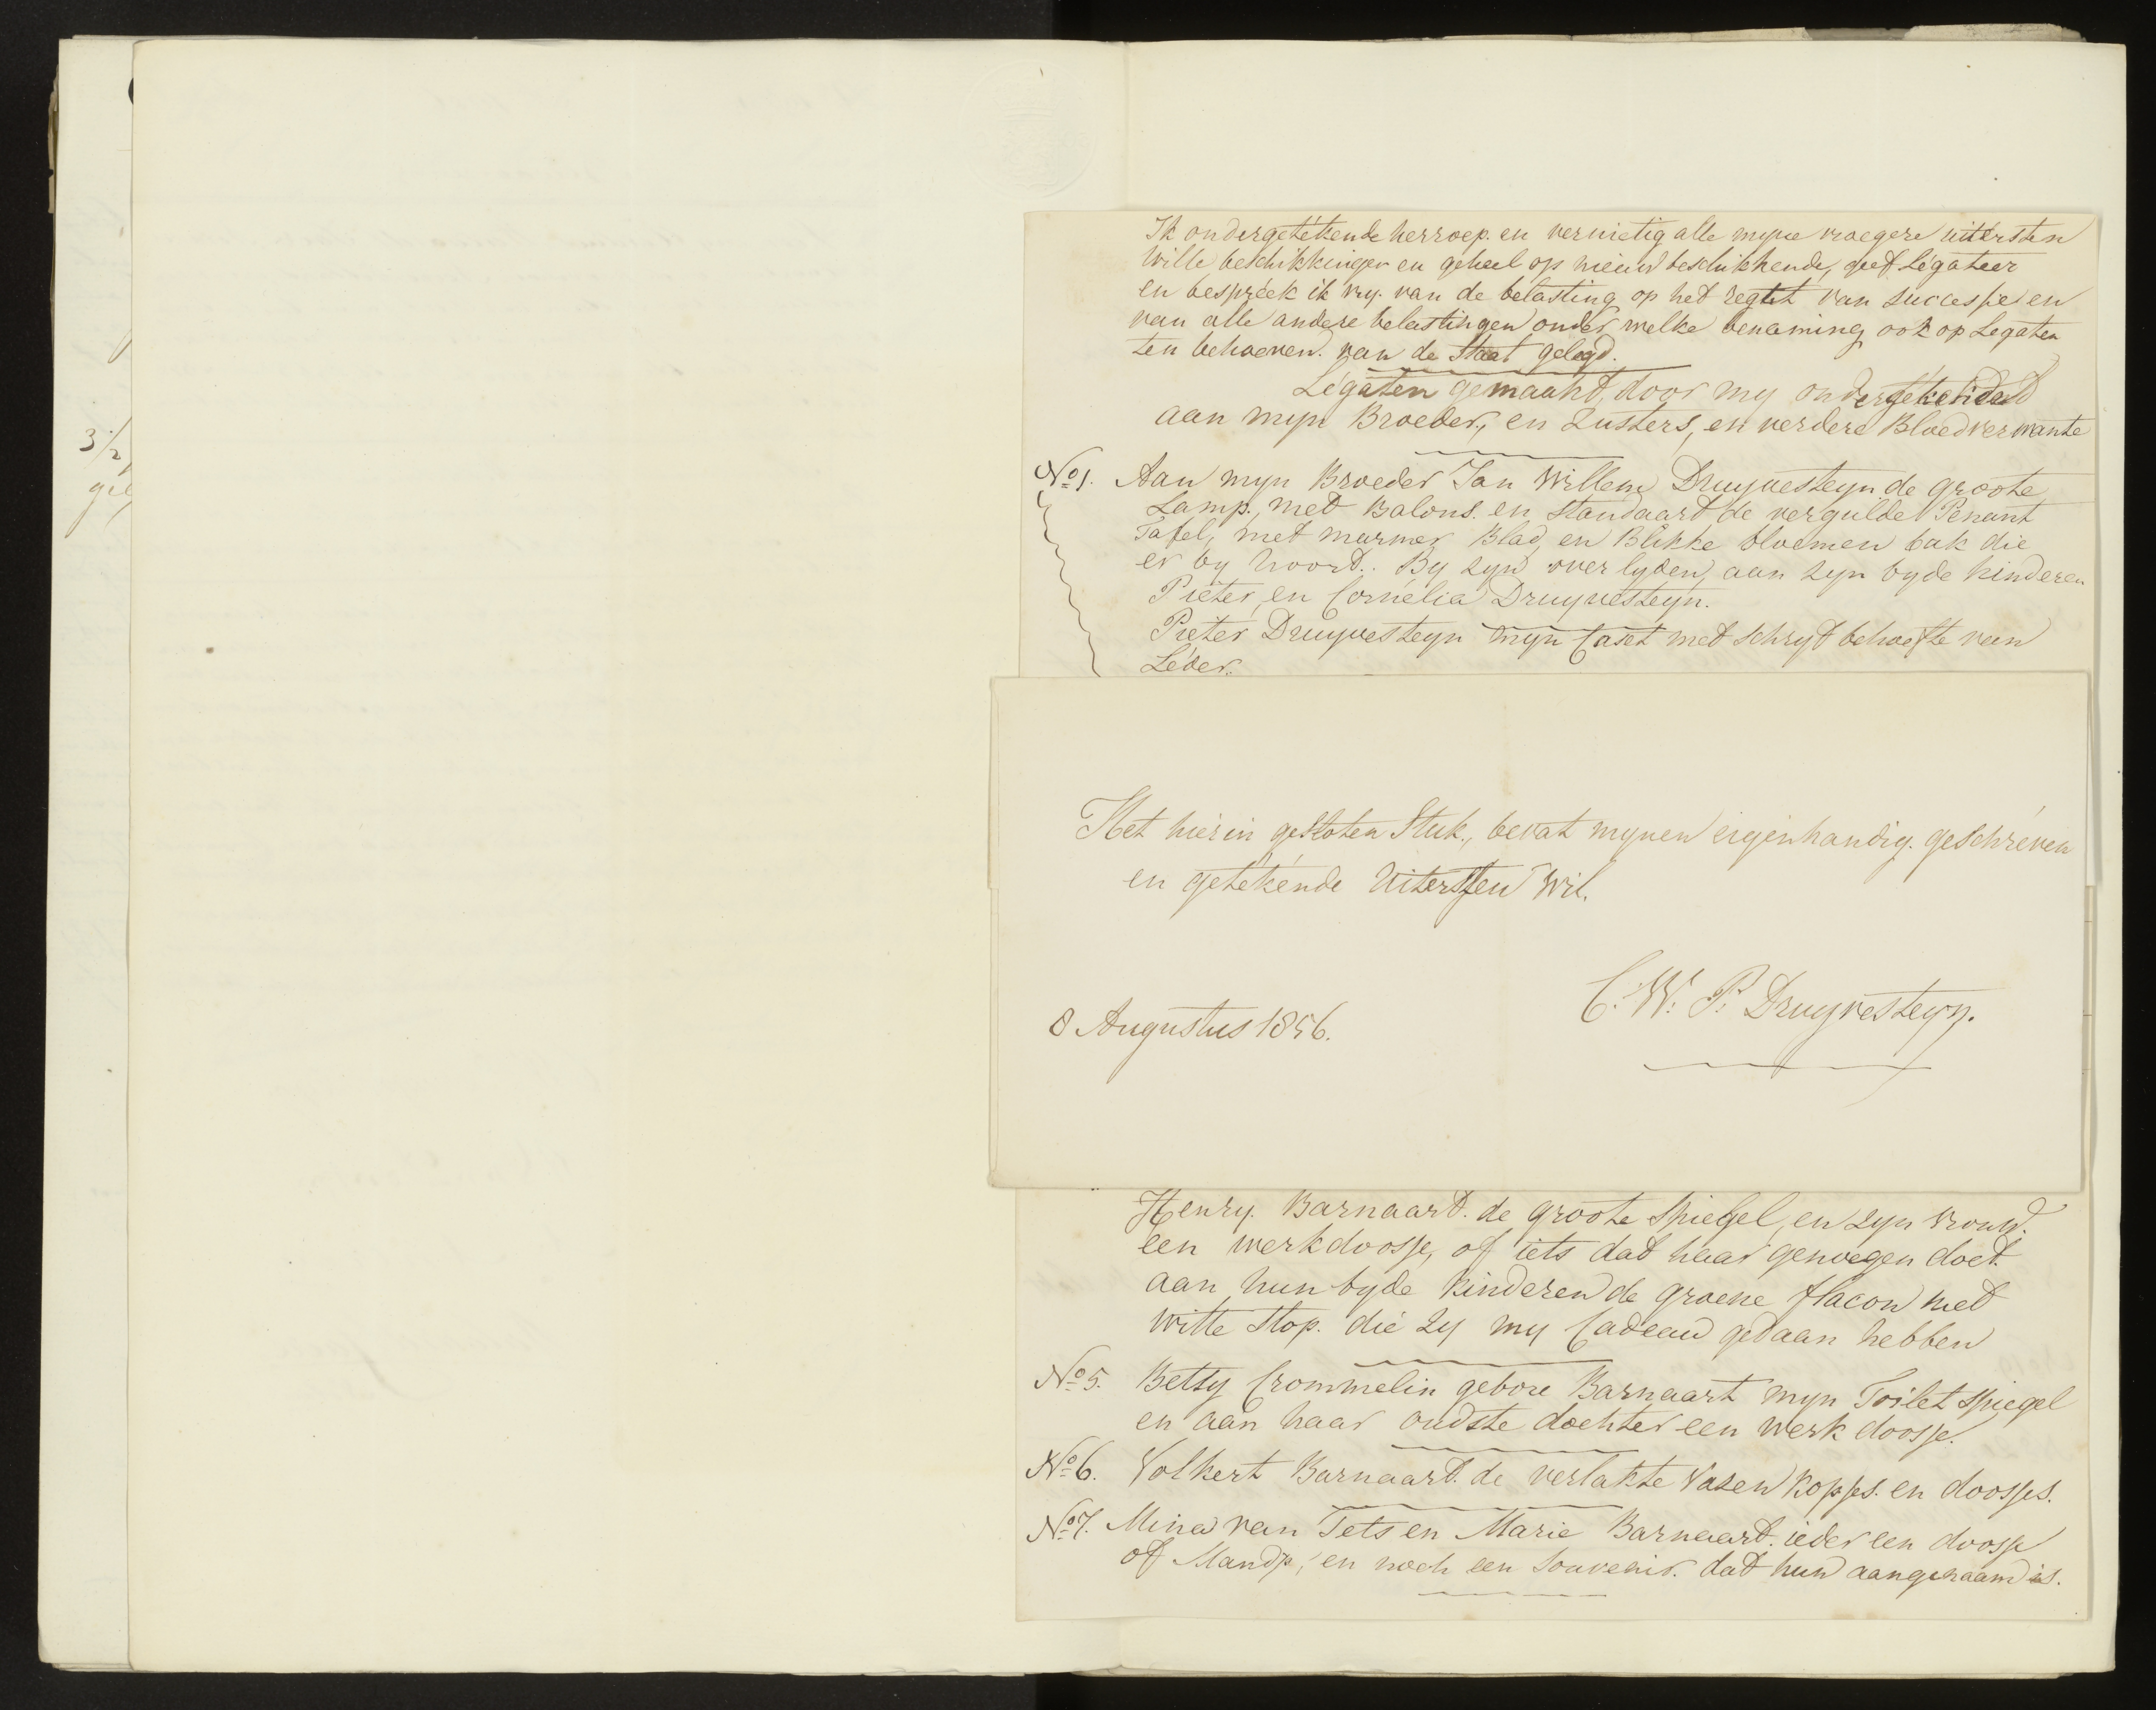 3/2
Ik ondergetékende herroep. en vernietig alle myne vroegere uitersten
Wille beschikkingen en geheel op nieuw beschikkende, geef Légateer
en bespréek ik vry. van de belasting op het regt van Successie en
van alle andere belastingen onder welke benaming ook op Legaten
ten behoeven. van de Staat gelegd.
Légaten gemaakt, door my ondergetékende
aan myn Broeder, en Zusters, en verdere Bloedverwante
No 1. Aan myn Broeder Jan Willem Druyvesteyn de groote
Lamp, met Balons. en standaart de vergulde Penant
Tafel, met marmer Blad, en Blikke bloemen bak die
er by hoord.. By zyn overlyden, aan zyn byde kinderen
Pieter, en Cornélia Druyvesteyn.
Pieter Druyvesteyn myn Caset met schryf behoefte van
Léder.
Het hierin gesloten Stuk, bevat mynen eigenhandig. geschréven
en getékénde Uitersten Wil.
C. W. P. Druyvesteyn.
8 Augustus 1856.
Henry. Barnaard. de groote Spiegel, en zyn vrouw.
een werkdoosje, of iets dat haar genoegen doet.
aan hun byde kinderen de groene flacon met
witte Stop. die zy my Cadeau gedaan hebben
No 5. Betsy Crommelin gebore Barnaart myn Toilet spiegel
en aan haar oudste dochter een werk doosje.
No 6. Volkert Barnaard. de verlakte Vazen kopjes. en doosjes.
No 7. Mina van Tets en Marie Barnaard. ieder een doosje
of Mandje, en noch een Souvenir. dat hun aangenaam is.